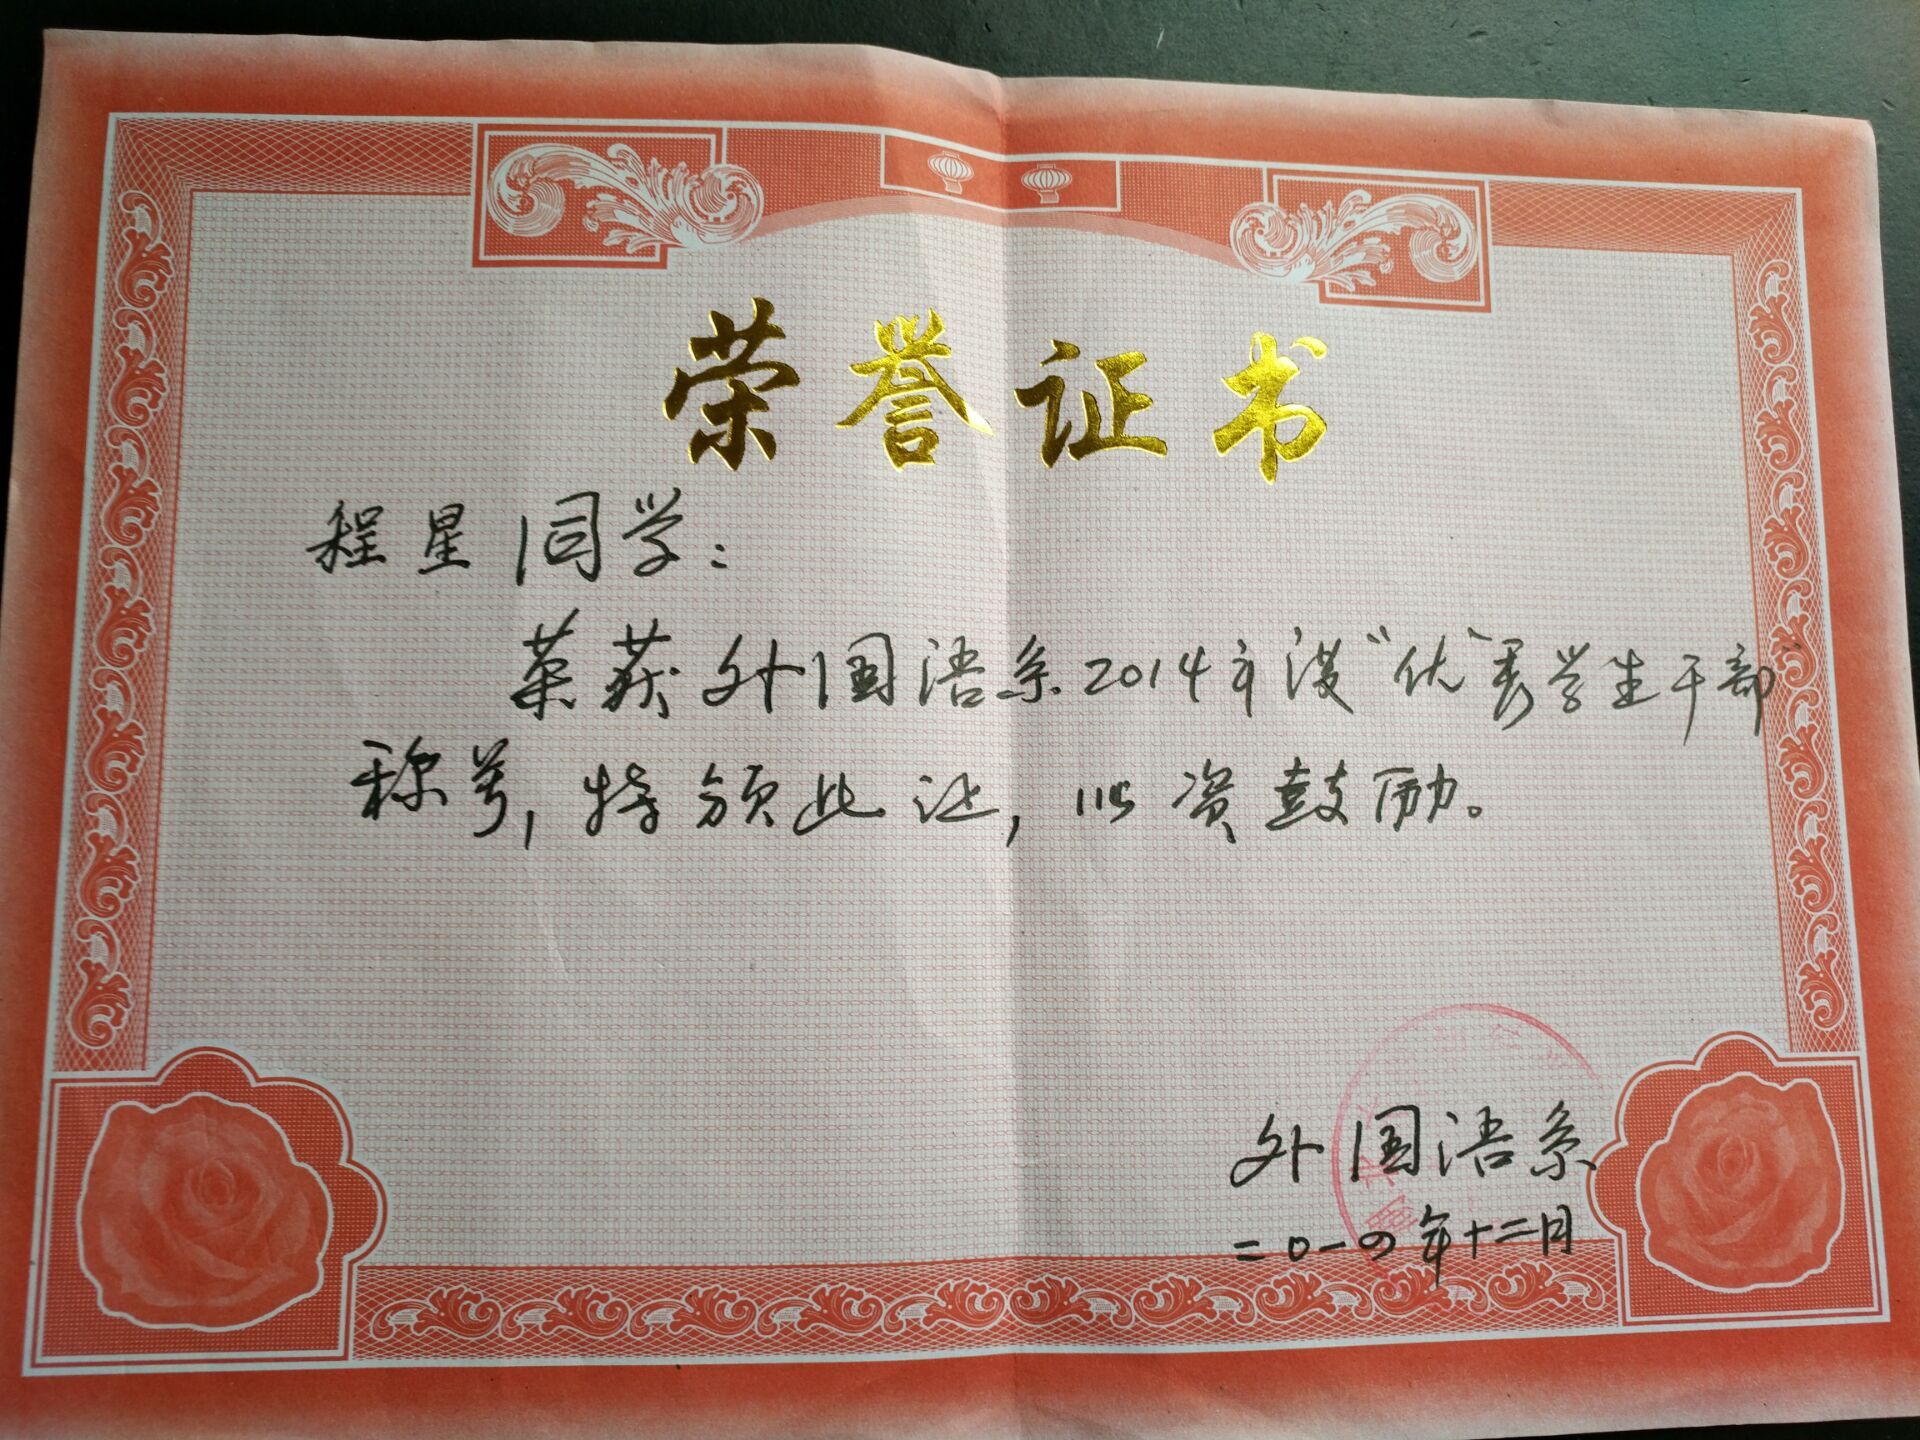 荣誉证书
程星同学：
荣获外国语系2014年度“优秀学生干部”
称号，特颁此证，以资鼓励。
外国语系
二〇一四年十二月